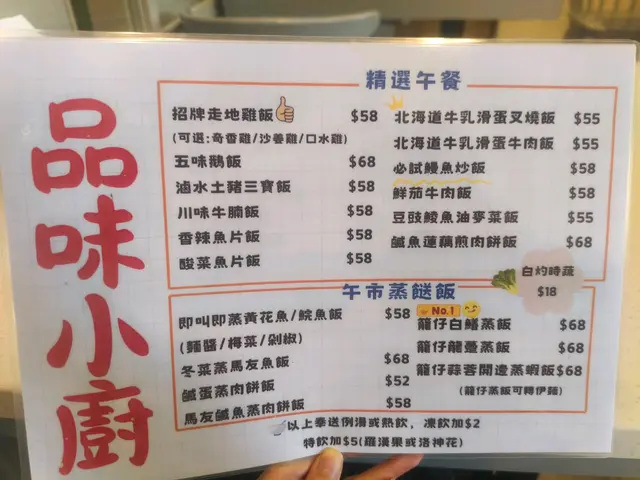 品味小廚
精選午餐
招牌走地雞飯 $58
(可選:奇香雞/沙姜雞/口水雞)
五味鵝飯 $68
滷水土豬三寶飯 $58
川味牛腩飯 $58
香辣魚片飯 $58
酸菜魚片飯 $58
北海道牛乳滑蛋叉燒飯 $55
北海道牛乳滑蛋牛肉飯 $55
必試鰻魚炒飯 $58
鮮茄牛肉飯 $58
豆豉鯪魚油麥菜飯 $55
鹹魚蓮藕煎肉餅飯 $68
白灼時蔬
$18
午市蒸餸飯
即叫即蒸黃花魚/鯇魚飯 $58
(麵醬/梅菜/剁椒)
冬菜蒸馬友魚飯 $68
鹹蛋蒸肉餅飯 $52
馬友鹹魚蒸肉餅飯 $58
No.1
籠仔白鱔蒸飯 $68
籠仔龍躉蒸飯 $68
籠仔蒜蓉開邊蒸蝦飯 $68
(籠仔蒸飯可轉伊麵)
以上奉送例湯或熱飲，凍飲加$2
特飲加$5(羅漢果或洛神花)